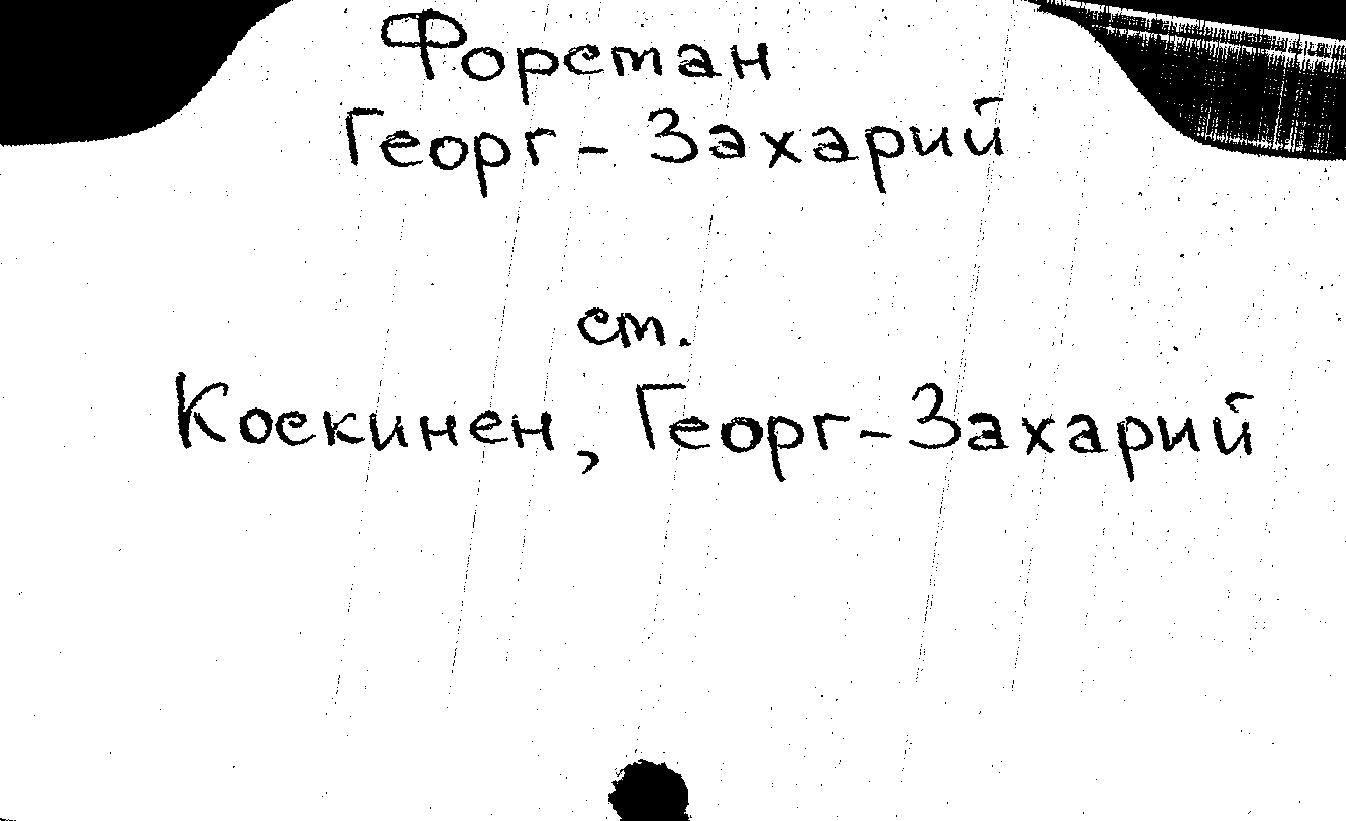 Форстан
Георг - Захарий
ст.
Коскинен, Георг-Захарий